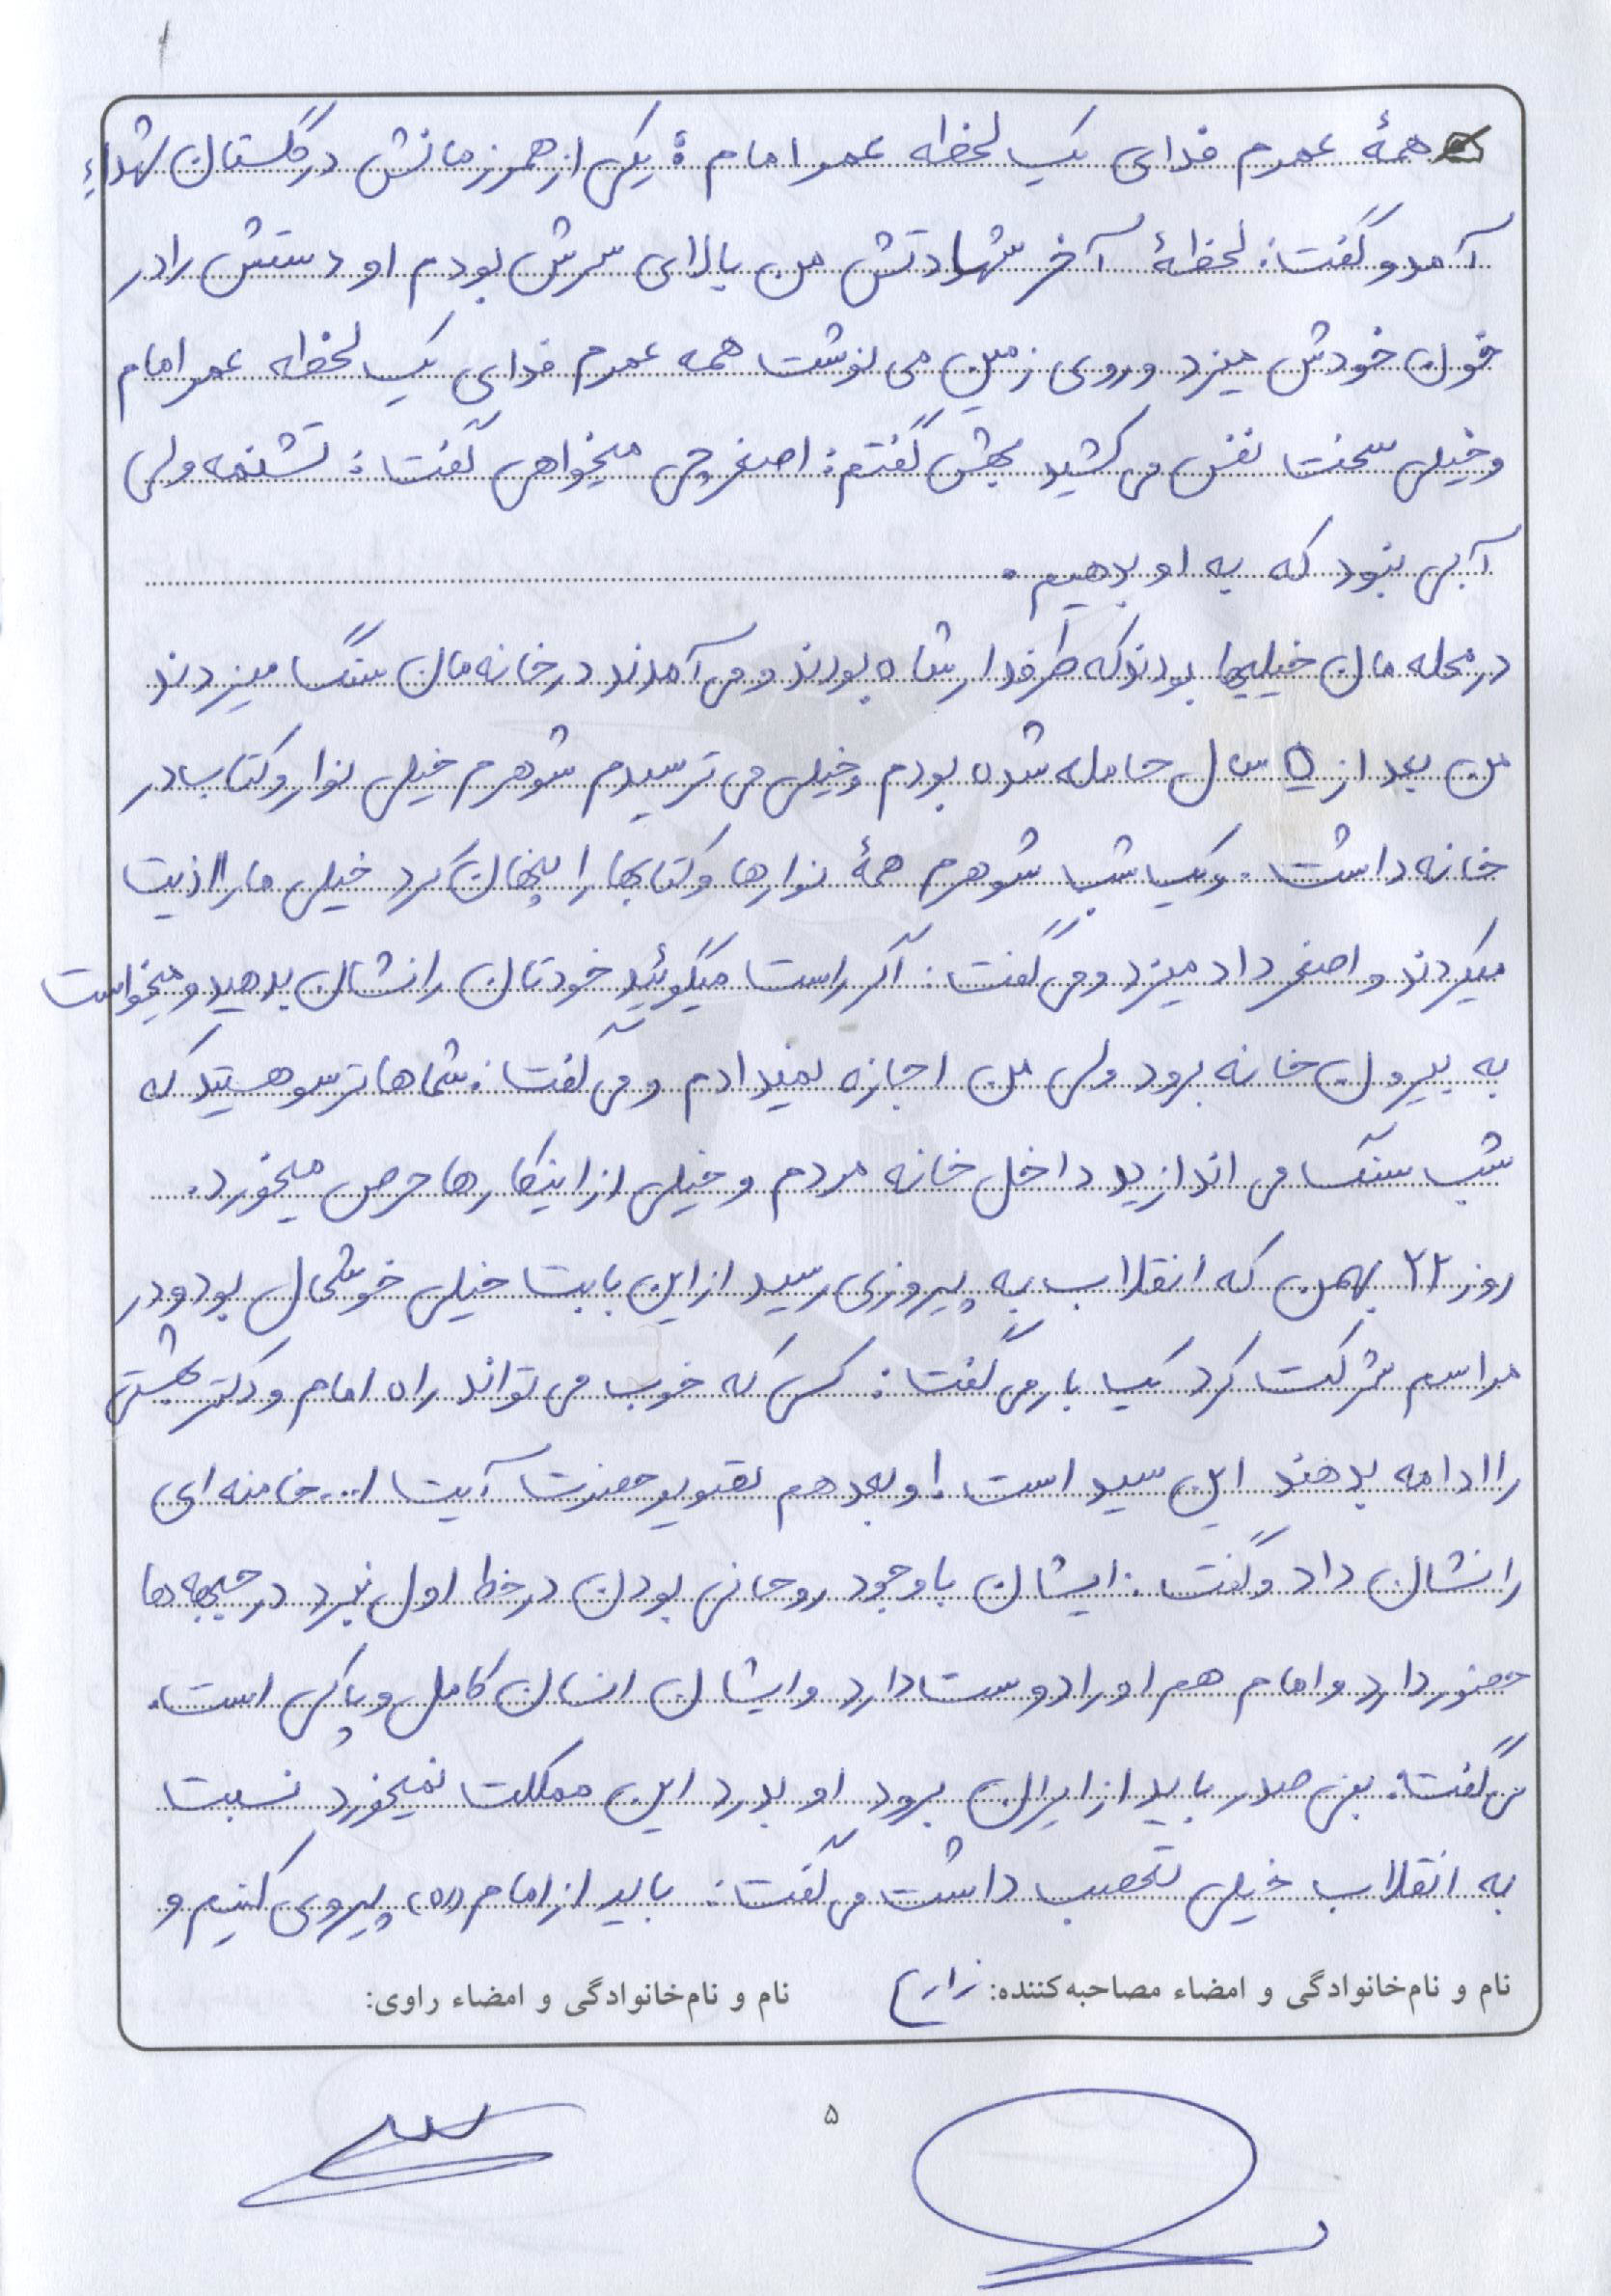 همهٔ عمرم فدای یک لحظه عمر امام : یکی از همرزمانش در گلستان شهداء
آمد و گفت: لحظهٔ آخر شهادتش من بالای سرش بودم او دستش را در
خون خودش میزد و روی زمین می نوشت همه عمرم فدای یک لحظه عمر امام
و خیلی سخت نفس می کشید بهش گفتم: اصغر چی میخواهی گفت: تشنمه ولی
آبی نبود که به او بدهیم.
در محله مان خیلیها بودند که طرفدار شاه بودند و می آمدند در خانه مان سنگ میزدند
من بعد از ۵ سال حامله شده بودم و خیلی می ترسیدم شوهرم خیلی نوار و کتاب در
خانه داشت. یک شب شوهرم همهٔ نوارها و کتابها را پنهان کرد خیلی ما را اذیت
میکردند و اصغر داد میزد و می گفت: اگر راست میگوئید خودتان را نشان بدهید و میخواست
به بیرون خانه برود ولی من اجازه نمیدادم و می گفت: شماها ترسو هستید که
شب سنگ می اندازید داخل خانه مردم و خیلی از اینکارها حرص میخورد.
روز ۲۲ بهمن که انقلاب به پیروزی رسید از این بابت خیلی خوشحال بود و در
مراسم شرکت کرد یک بار می گفت: کسی که خوب می تواند راه امام و دکتر بهشتی
را ادامه بدهند این سید است! و بعد هم تصویر حضرت آیت ا... خامنه ای
را نشان داد و گفت: ایشان با وجود روحانی بودن در خط اول نبرد در جبهه ها
حضور دارد و امام هم او را دوست دارد و ایشان انسان کامل و پاکی است.
می گفت: بنی صدر باید از ایران برود او بدرد این مملکت نمیخورد نسبت
به انقلاب خیلی تعصب داشت می گفت: باید از امام (ره) پیروی کنیم و
نام و نام‌خانوادگی و امضاء مصاحبه‌کننده: زارع نام و نام‌خانوادگی و امضاء راوی:
۵